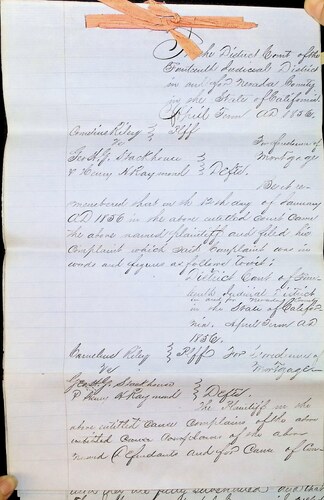 In the District Court of the
Fourteenth Judicial District
in and for Nevada County
in the State of California
April Term AD 1856.
Cornelius Riley } Plff
vs } For foreclosure of
Geo. H. G. Stackhouse } Mortgage
& Henry N Raymond } Defts.
Be it re-
membered that on the 12th day of January
AD 1856 in the above entitled Court came
the above named plaintiff and filed his
Complaint which said Complaint was in
words and figures as follows Towit:
District Court of Four-
teenth Judicial District
in and for Nevada County
in the State of Califor
nia. April Term AD
1856.
Cornelius Riley } Plff For Foreclosures of
vs } Mortgage
Geo H. G. Stackhouse }
Henry N Raymond } Defts.
The Plaintiff in the
above entitled cause complains of the above
entitled Cause complains of the above
named Defendants and for Cause of Com-